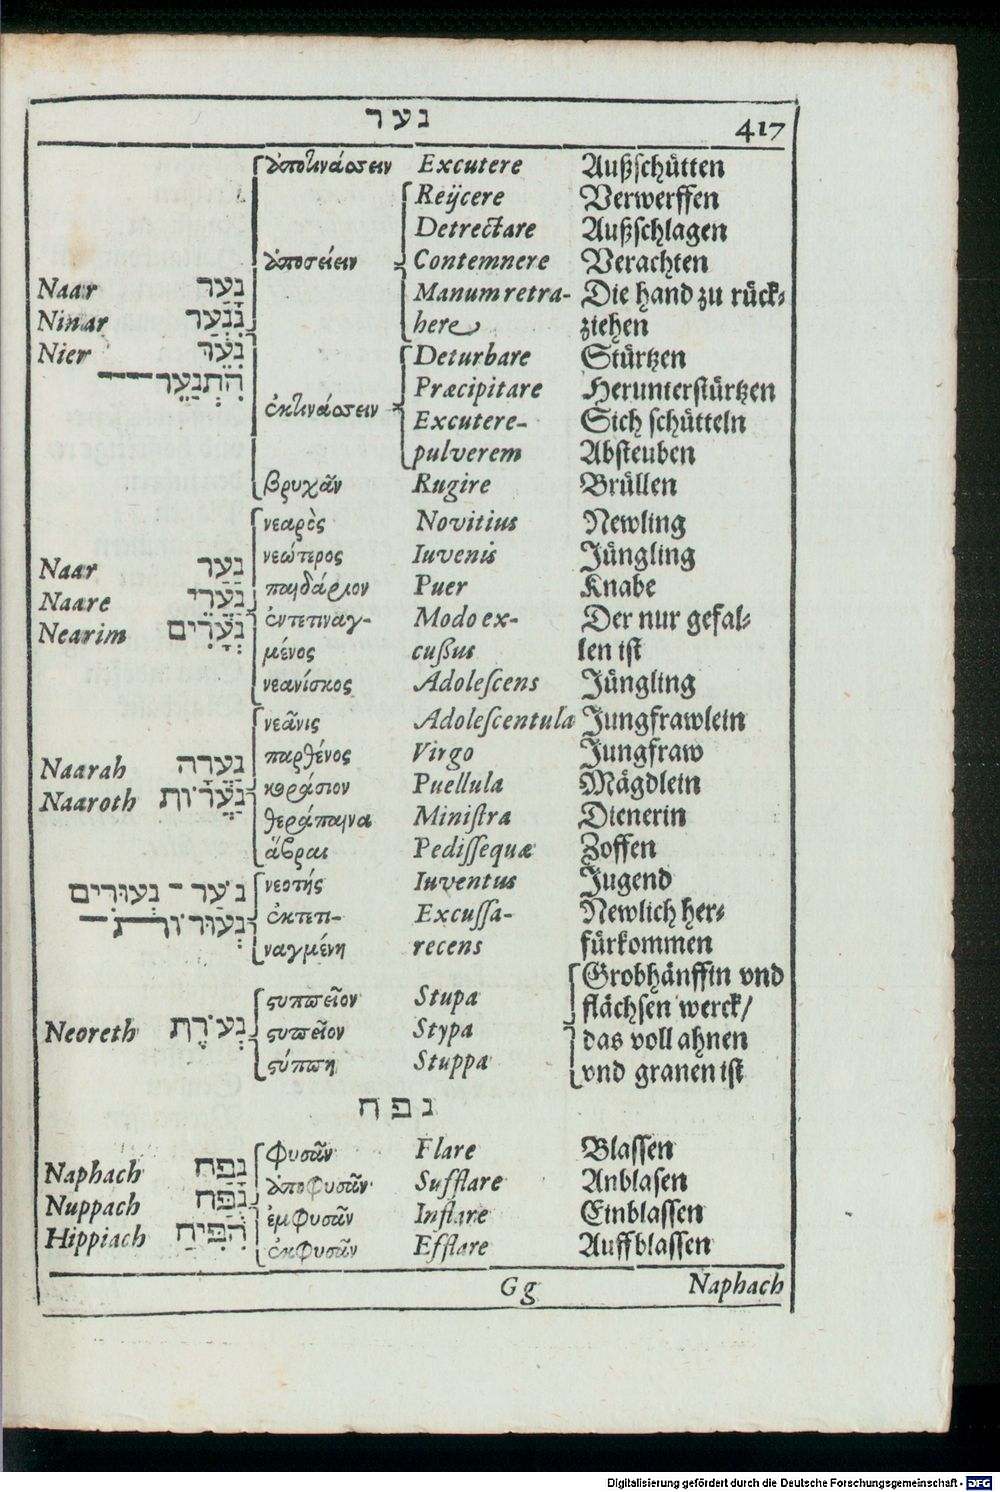 נער 417
ἀποτινάσσειν Excutere Außschütten
Reÿcere Verwerffen
Detrectare Außschlagen
ἀποσείειν Contemnere Verachten
Naar נָעַר Manum retra- Die hand zu rück-
Ninar נִנְעַר here ziehen
Nier נִעֵר Deturbare Stürtzen
הִתְנַעֵר Præcipitare Herunterstürtzen
ἐκτινάσσειν Excutere- Sich schütteln
pulverem Absteuben
βρυχᾶν Rugire Brüllen
νεαρὸς Novitius Newling
Naar נַעַר νεώτερος Iuvenis Jüngling
Naare נַעֲרֵי παιδάριον Puer Knabe
Nearim נְעָרִים ἐντετιναγ- Modo ex- Der nur gefal-
μένος cußus len ist
νεανίσκος Adolescens Jüngling
νεᾶνις Adolescentula Jungfrawlein
παρθένος Virgo Jungfraw
Naarah נַעֲרָה κοράσιον Puellula Mägdlein
Naaroth נַעֲרוֹת θεράπαινα Ministra Dienerin
ἅβραι Pedissequæ Zoffen
נֹעַר – נְעוּרִים νεοτής Iuventus Jugend
נְעוּרוֹת ἐκτετι- Excussa- Newlich her-
ναγμένη recens fürkommen
Grobhänffin vnd
ςυπωεῖον Stupa flächsen werck/
Neoreth נְעֹרֶת ςυπεῖον Stypa das voll ahnen
ςύπωη Stuppa vnd granen ist
נפח
φυσᾶν Flare Blassen
Naphach נָפַח ἀποφυσᾶν Sufflare Anblasen
Nuppach נֻפַּח ἐμφυσᾶν Inflare Einblassen
Hippiach הִפִּיחַ ἐκφυσᾶν Efflare Auffblassen
Gg Naphach
Digitalisierung gefördert durch die Deutsche Forschungsgemeinschaft - DFG